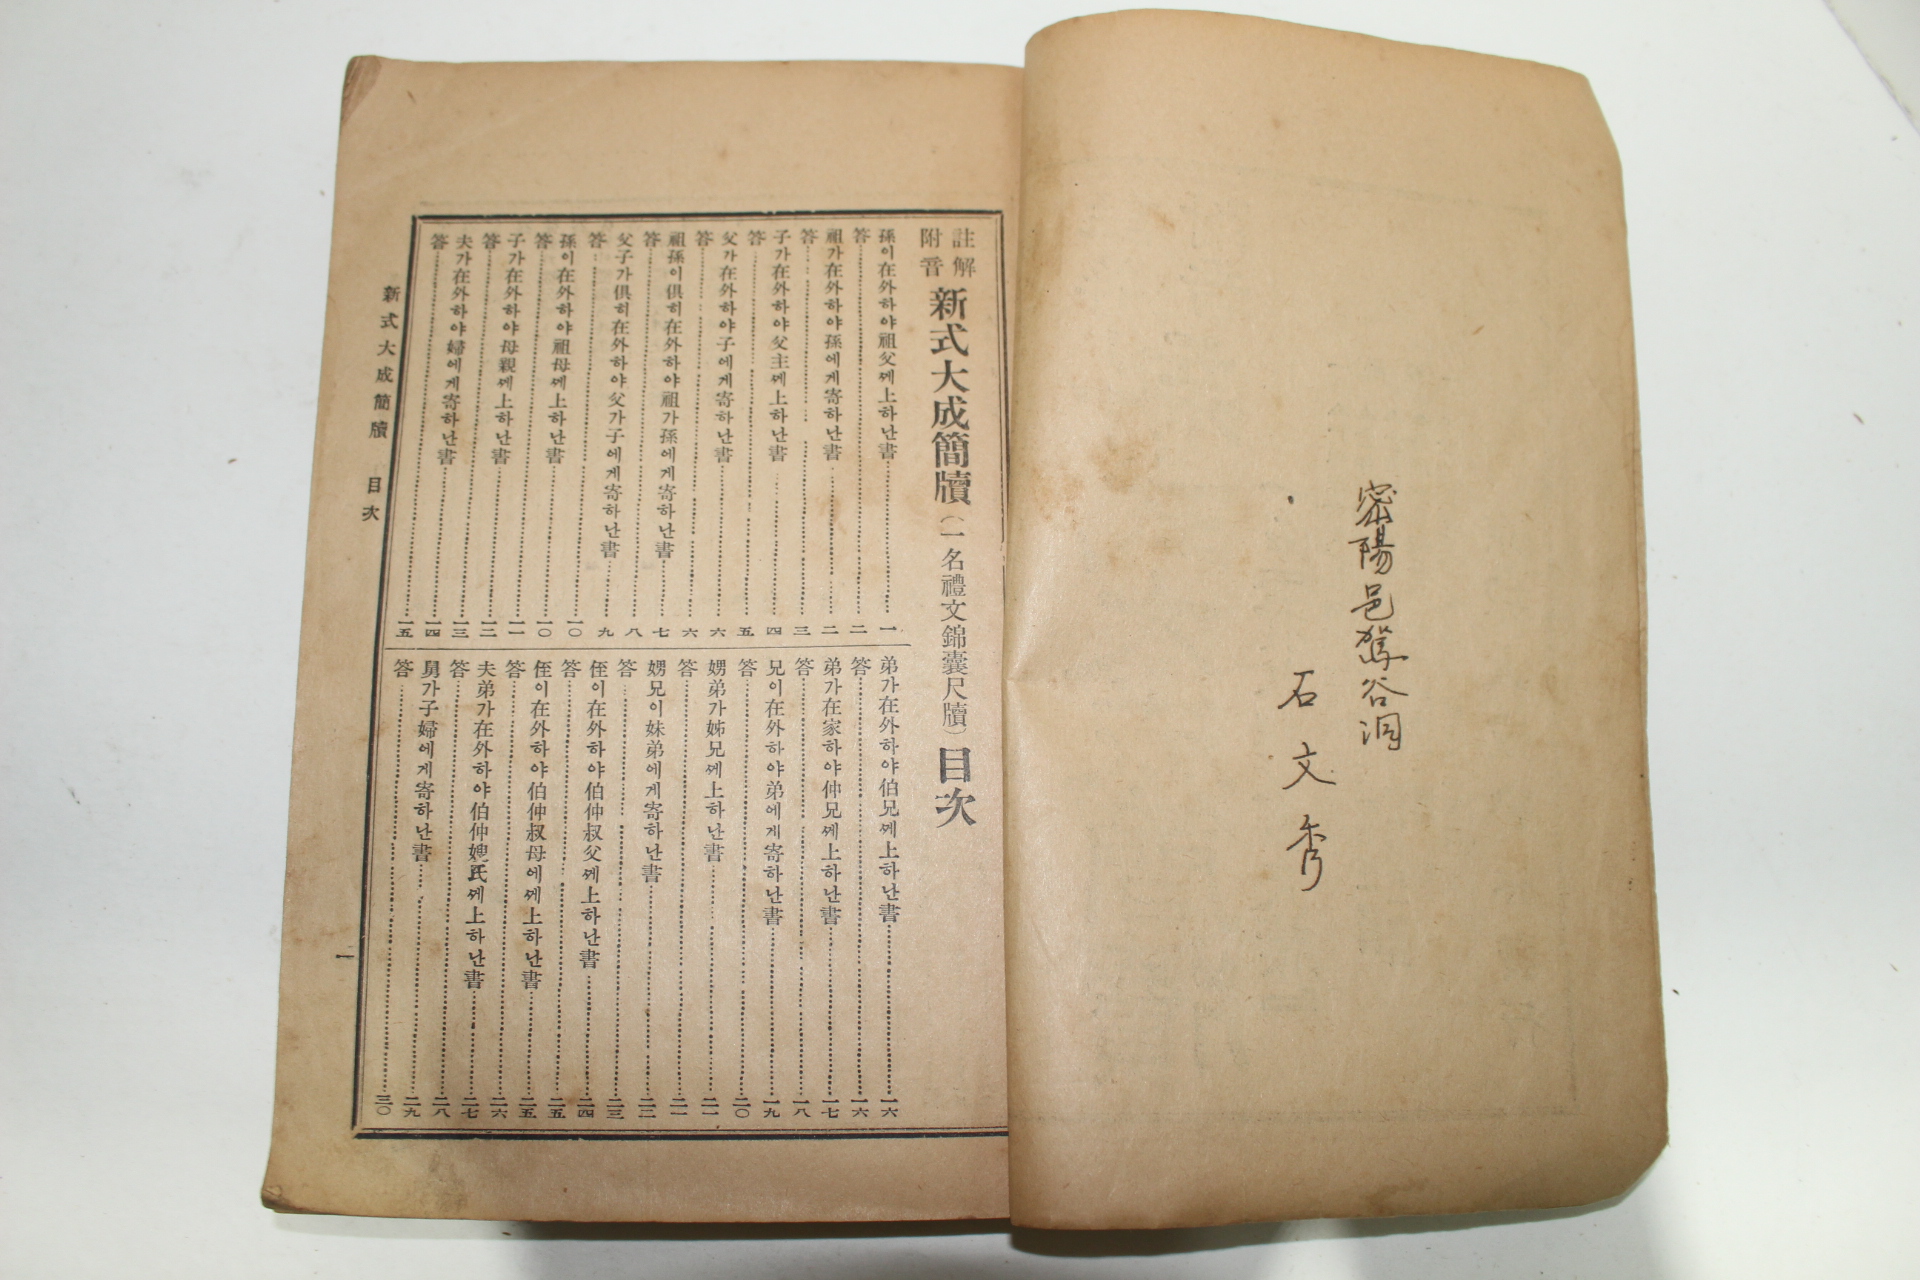 密陽邑駕谷洞
石文秀
註解
附音
新式大成簡牘(一名禮文錦囊尺牘)目次
孫이在外하야祖父께上하난書 一
答 二
祖가在外하야孫에게寄하난書 二
答 三
子가在外하야父主께上하난書 四
答 五
父가在外하야子에게寄하난書 六
答 六
祖孫이俱히在外하야祖가孫에게寄하난書 七
答 八
父子가俱히在外하야父가子에게寄하난書 九
答 一〇
孫이在外하야祖母께上하난書 一〇
答 一一
子가在外하야母親께上하난書 一二
答 一三
夫가在外하야婦에게寄하난書 一四
答 一五
弟가在外하야伯兄께上하난書 一六
答 一六
弟가在家하야仲兄께上하난書 一七
答 一八
兄이在外하야弟에게寄하난書 一九
答 二〇
娚弟가姊兄께上하난書 二一
答 二一
娚兄이妹弟에게寄하난書 二二
答 二三
侄이在外하야伯仲叔父께上하난書 二四
答 二五
侄이在外하야伯仲叔母에께上하난書 二五
答 二六
夫弟가在外하야伯仲嫂氏께上하난書 二七
答 二八
舅가子婦에게寄하난書 二九
答 三〇
新式大成簡牘 目次
一